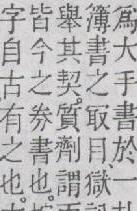 爲大手書於一
簿書之取目獄
舉其契質劑謂
皆今之券書也
字自古有之也